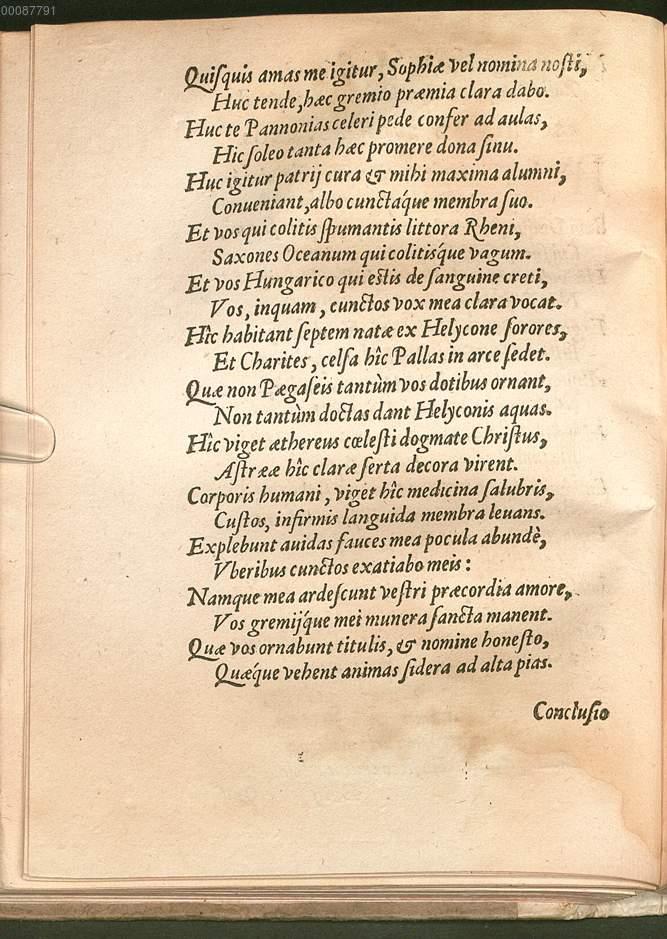 00087791
Quiſquis amas me igitur, Sophiæ vel nomina noſti,
Huc tende, hæc gremio præmia clara dabo.
Huc te Pannonias celeri pede confer ad aulas,
Hic ſoleo tanta hæc promere dona ſinu.
Huc igitur patrij cura & mihi maxima alumni,
Conueniant, albo cunctáque membra ſuo.
Et vos qui colitis ſpumantis littora Rheni,
Saxones Oceanum qui colitisq́ue vagum.
Et vos Hungarico qui eſtis de ſanguine creti,
Vos, inquam, cunctos vox mea clara vocat.
Hîc habitant ſeptem natæ ex Helycone ſorores,
Et Charites, celſa hîc Pallas in arce ſedet.
Quæ non Pægaſeis tantùm vos dotibus ornant,
Non tantùm doctas dant Helyconis aquas.
Hîc viget æthereus cœleſti dogmate Chriſtus,
Aſtrææ hîc claræ ſerta decora virent.
Corporis humani, viget hîc medicina ſalubris,
Cuſtos, infirmis languida membra leuans.
Explebunt auidas fauces mea pocula abundè,
Vberibus cunctos exatiabo meis:
Namque mea ardeſcunt veſtri præcordia amore,
Vos gremijq́ue mei munera ſancta manent.
Quæ vos ornabunt titulis, & nomine honeſto,
Quæq́ue vehent animas ſidera ad alta pias.
Concluſio